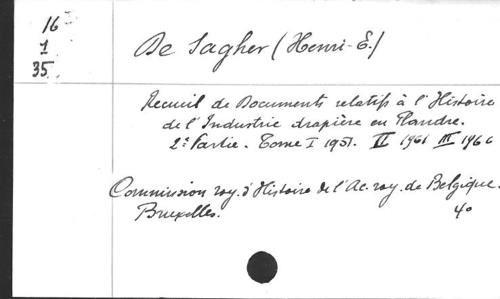 16
1
35.
De Sagher (Henri-E.)
Recueil de Documents relatifs à l'Histoire
de l'Industrie drapière en Flandre.
2e Partie. Tome I 1951. II 1961 III 1966
Commission roy. d'Histoire de l'Ac. roy. de Belgique.
Bruxelles. 4o